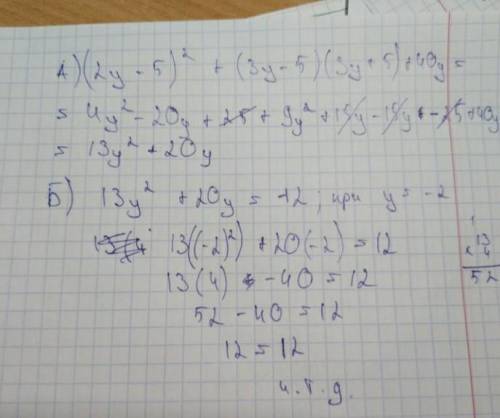 А) (2y - 5)² + (3y - 5)(3y + 5) + 40y =
= 4y² - 20y + 25 + 9y² + 15y - 15y - 25 + 40y
= 13y² + 20y
Б) 13y² + 20y = 12; при y = -2
13((-2)²) + 20(-2) = 12
13(4) - 40 = 12
52 - 40 = 12
12 = 12
ч.т.д.
1
13
× 4
52